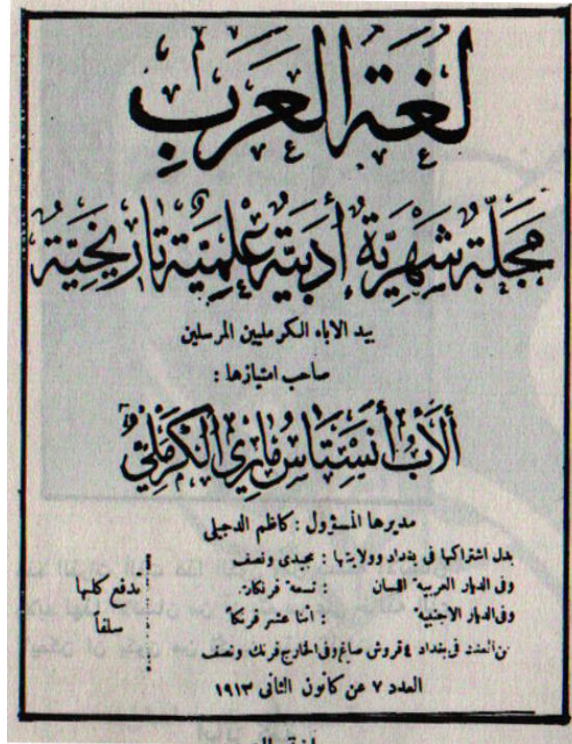 لغة العرب
مَجَلَّةٌ شَهْرِيَّةٌ أَدَبِيَّةٌ عِلْمِيَّةٌ تَارِيخِيَّةٌ
بيد الاباء الكرمليين المرسلين
صاحب امتيازها :
أَلأَبُ أَنَسْتَاسُ مَارِي الكَرْمَلِيُّ
مديرها المسؤول : كاظم الدجيلى
بدل اشتراكها فى بغداد وولايتها : مجيدى ونصف
وفى الديار العربية اللسان : تسعة فرنكات
وفى الديار الاجنبية : اثنا عشر فرنكاً
تدفع كلها
سلفاً
ثمن العدد فى بغداد ٤ قروش صاغ وفى الخارج فرنك ونصف
العدد ٧ عن كانون الثانى ١٩١٣